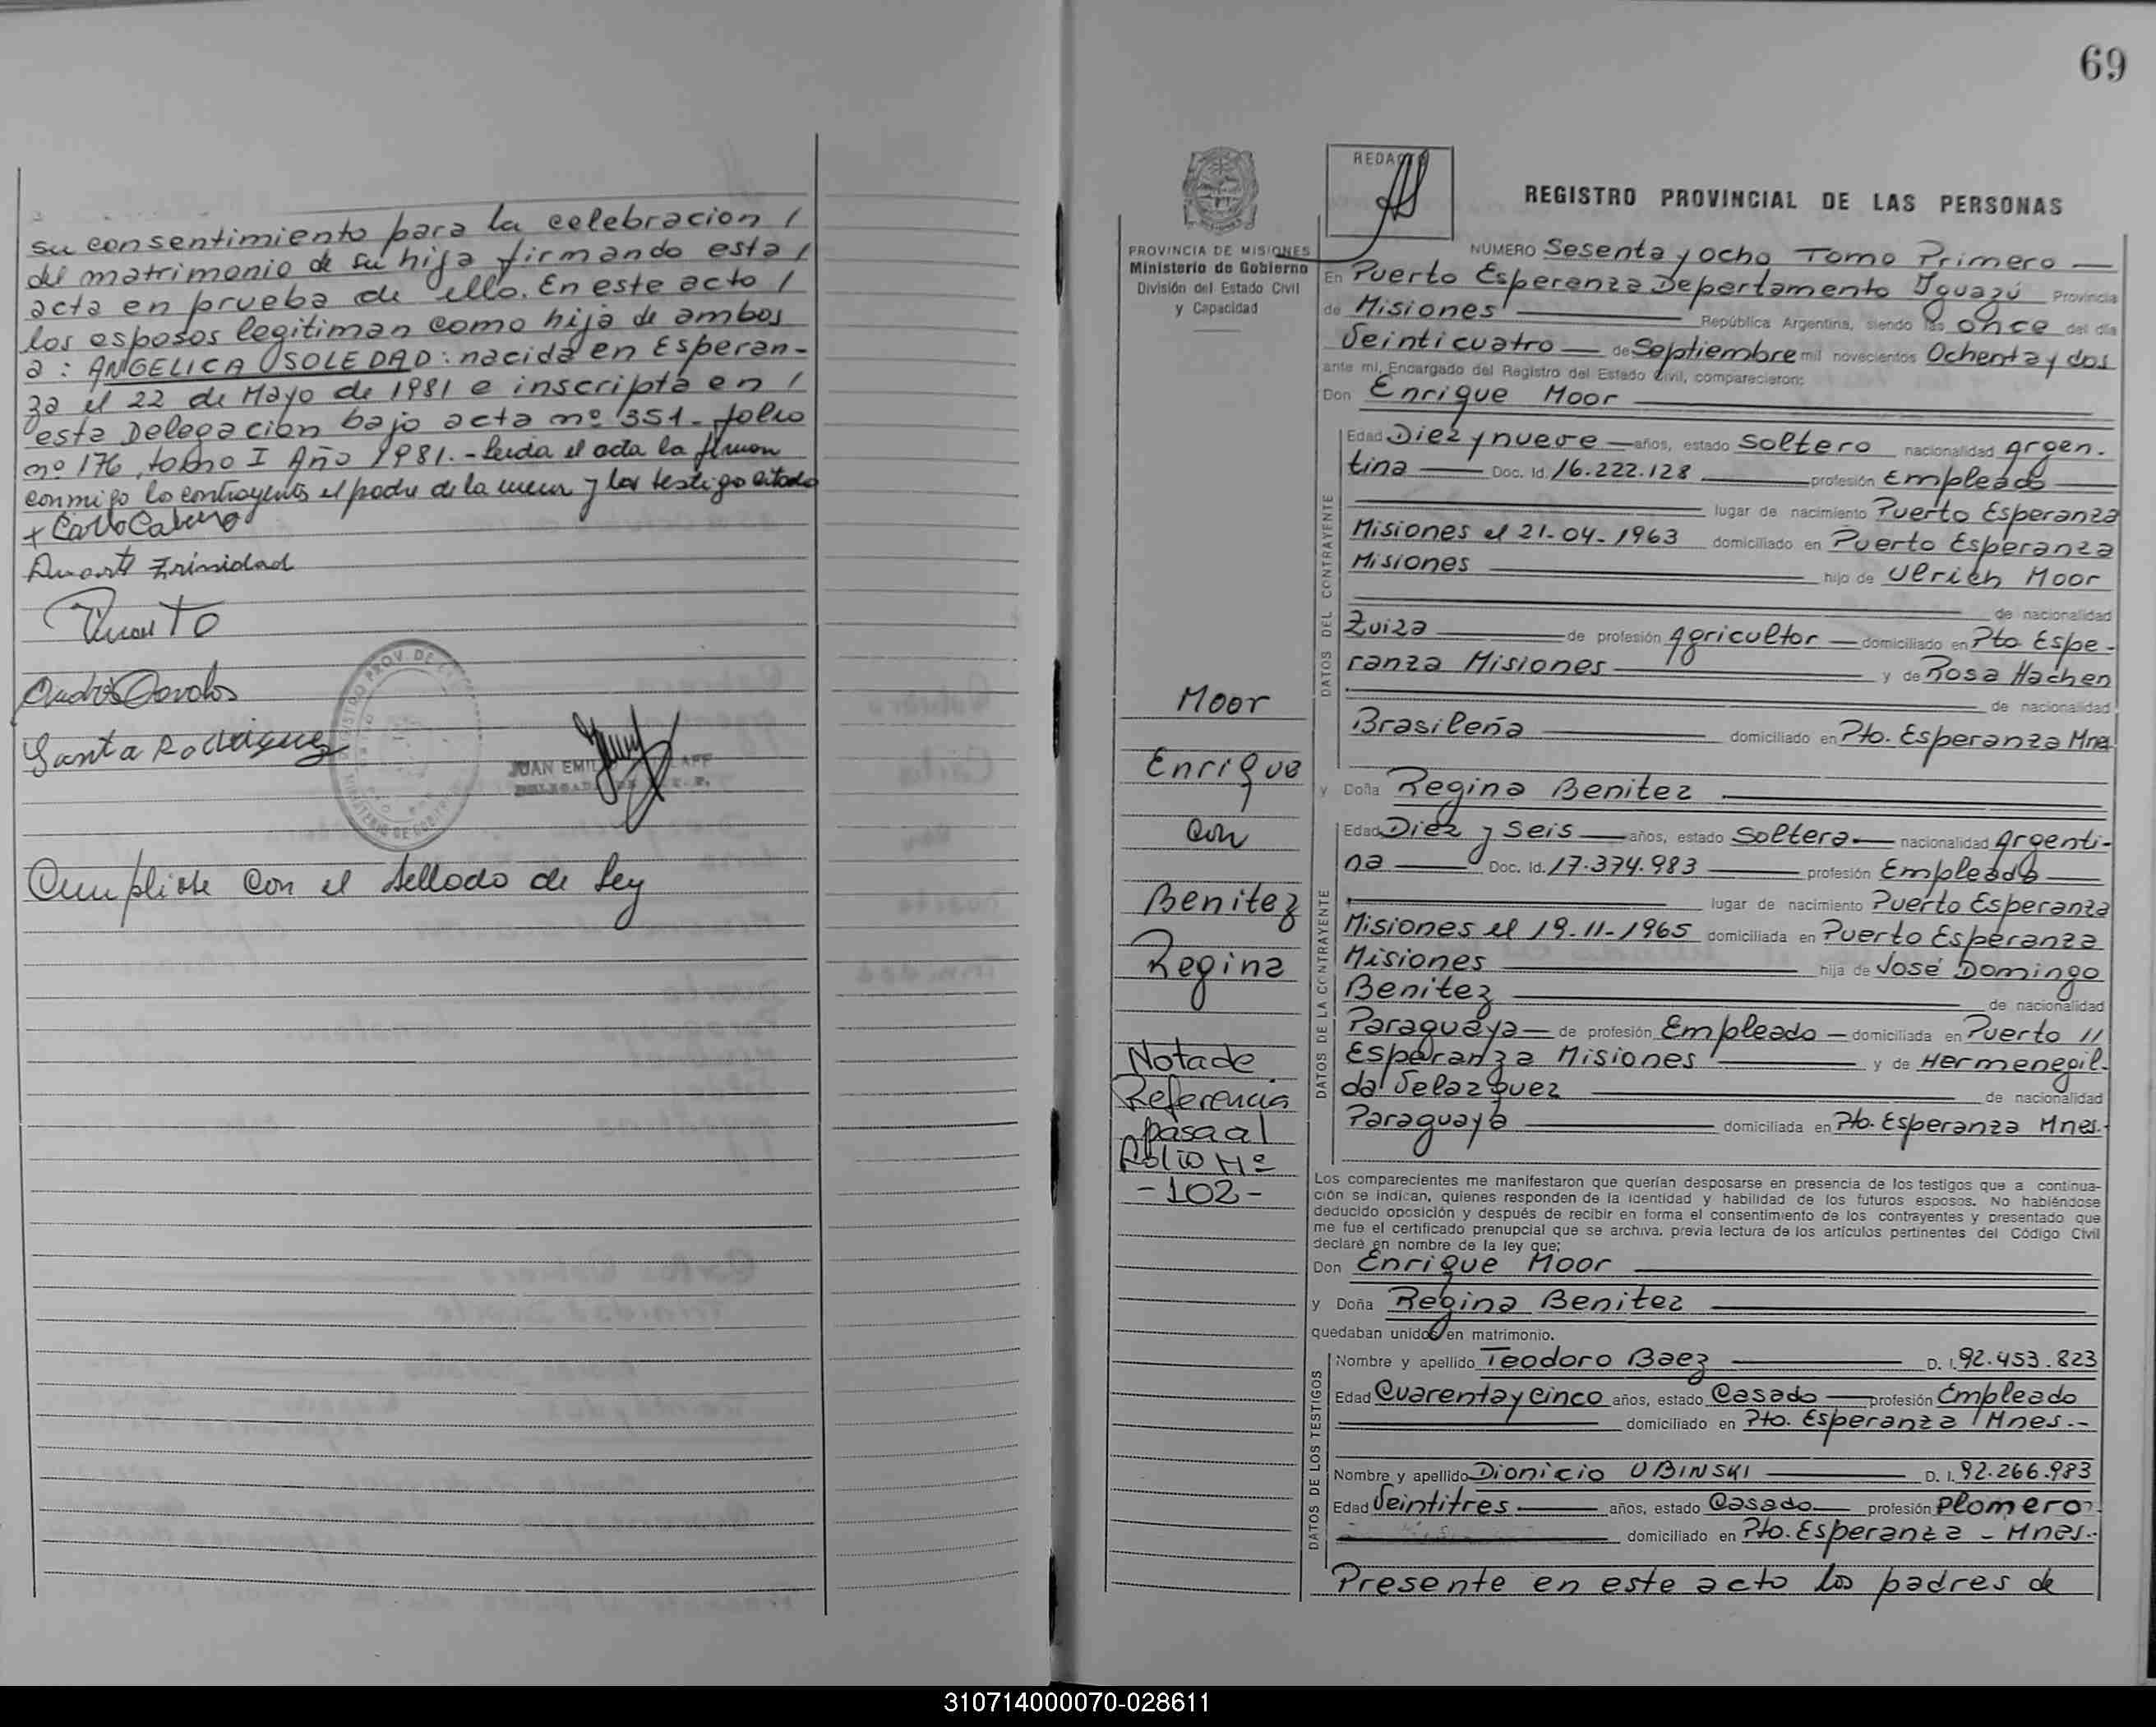 su consentimiento para la celebracion /
del matrimonio de su hija firmando esta /
acta en prueba de ello. En este acto /
los esposos legitiman como hija de ambos
a : ANGELICA SOLEDAD : nacida en Esperan-
za el 22 de Mayo de 1981 e inscripta en /
esta Delegacion bajo acta nº 351 - folio
nº 176, tomo I Año 1981. - Leida el acta la firman
conmigo los contrayentes el padre de la menor y los testigos citados
+ Carlo Cabrera
Duarte Trinidad
Duarte
Santa Rodriguez
REGISTRO PROV. DE
MINISTERIO DE GOBIERNO
JUAN EMIL
DELEGADO
Cumpliose con el sellado de Ley
69
REDACTÓ
REGISTRO PROVINCIAL DE LAS PERSONAS
PROVINCIA DE MISIONES
Ministerio de Gobierno
División del Estado Civil
y Capacidad
NUMERO Sesenta y ocho Tomo Primero
En Puerto Esperanza Departamento Yguazú Provincia
de Misiones República Argentina, siendo las once del día
Veinticuatro de Septiembre mil novecientos Ochenta y dos
ante mi, Encargado del Registro del Estado Civil, comparecieron:
Don Enrique Moor
DATOS DEL CONTRAYENTE
Edad Diez y nueve años, estado Soltero nacionalidad Argen-
tina Doc. Id. 16.222.128 profesión Empleado
lugar de nacimiento Puerto Esperanza
Misiones el 21-04-1963 domiciliado en Puerto Esperanza
Misiones hijo de Ulrich Moor
de nacionalidad
Zuiza de profesión Agricultor domiciliado en Pto. Espe-
ranza Misiones y de Rosa Hachen
de nacionalidad
Brasileña domiciliado en Pto. Esperanza Mnes.
y Doña Regina Benitez
DATOS DE LA CONTRAYENTE
Edad Diez y seis años, estado Soltera nacionalidad Argenti-
na Doc. Id. 17.374.983 profesión Empleada
lugar de nacimiento Puerto Esperanza
Misiones el 19-11-1965 domiciliada en Puerto Esperanza
Misiones hija de José Domingo
Benitez de nacionalidad
Paraguaya de profesión Empleado domiciliada en Puerto //
Esperanza Misiones y de Hermenegil-
da Velazquez de nacionalidad
Paraguaya domiciliada en Pto. Esperanza Mnes.
Moor
Enrique
con
Benitez
Regina
Nota de
Referencia
pasa al
Folio Nº
- 102 -
Los comparecientes me manifestaron que querían desposarse en presencia de los testigos que a continua-
ción se indican, quienes responden de la identidad y habilidad de los futuros esposos. No habiéndose
deducido oposición y después de recibir en forma el consentimiento de los contrayentes y presentado que
me fue el certificado prenupcial que se archiva, previa lectura de los artículos pertinentes del Código Civil
declaré en nombre de la ley que;
Don Enrique Moor
y Doña Regina Benitez
quedaban unidos en matrimonio.
DATOS DE LOS TESTIGOS
Nombre y apellido Teodoro Baez D. I. 92.453.823
Edad Cuarenta y cinco años, estado Casado profesión Empleado
domiciliado en Pto. Esperanza Mnes.-
Nombre y apellido Dionicio UBINSKI D. I. 92.266.983
Edad Veintitres años, estado Casado profesión Plomero
domiciliado en Pto. Esperanza - Mnes.-
Presente en este acto los padres de
310714000070-028611